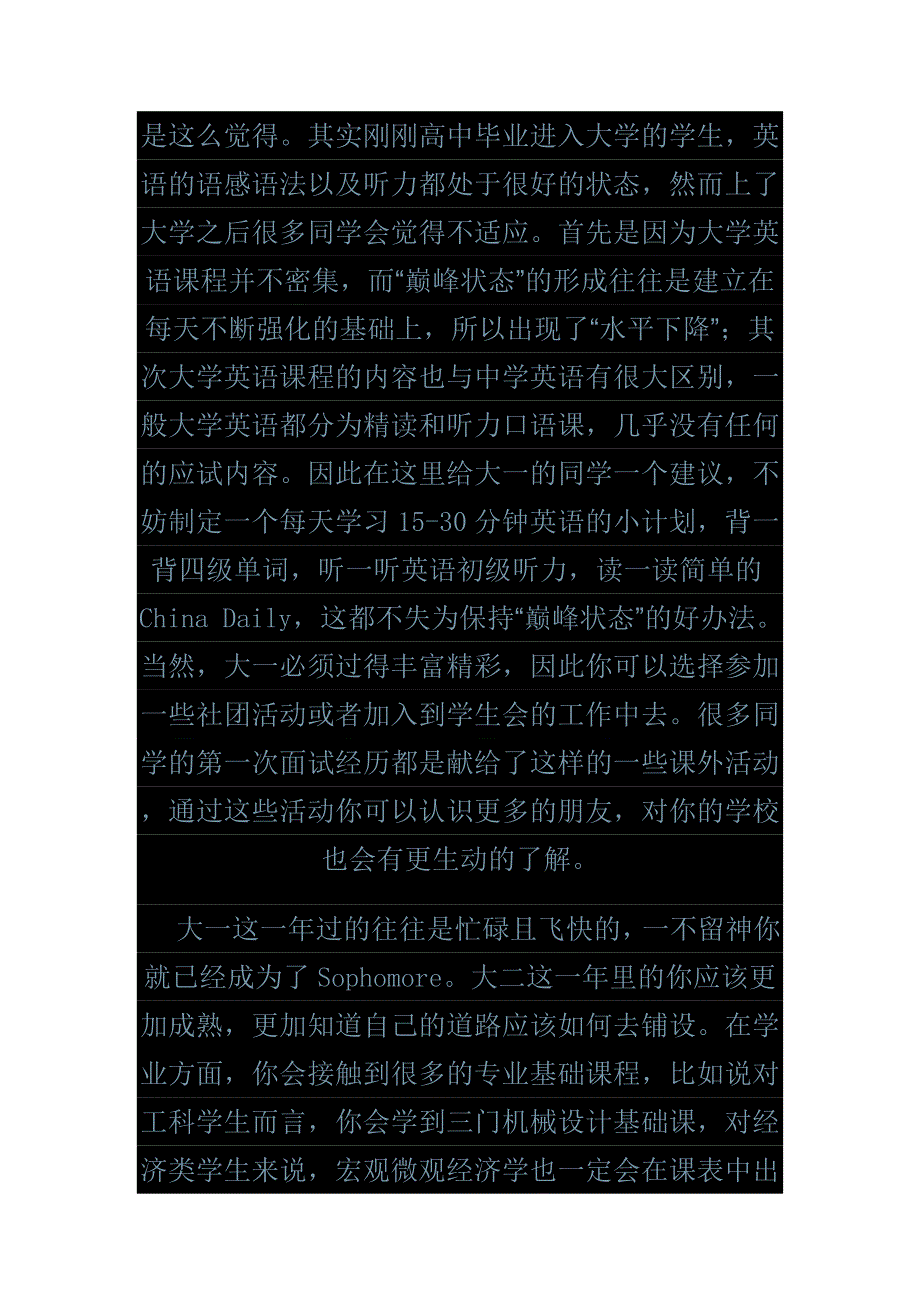 是这么觉得。其实刚刚高中毕业进入大学的学生，英
语的语感语法以及听力都处于很好的状态，然而上了
大学之后很多同学会觉得不适应。首先是因为大学英
语课程并不密集，而“巅峰状态”的形成往往是建立在
每天不断强化的基础上，所以出现了“水平下降”；其
次大学英语课程的内容也与中学英语有很大区别，一
般大学英语都分为精读和听力口语课，几乎没有任何
的应试内容。因此在这里给大一的同学一个建议，不
妨制定一个每天学习 15-30 分钟英语的小计划，背一
背四级单词，听一听英语初级听力，读一读简单的
China Daily，这都不失为保持“巅峰状态”的好办法。
当然，大一必须过得丰富精彩，因此你可以选择参加
一些社团活动或者加入到学生会的工作中去。很多同
学的第一次面试经历都是献给了这样的一些课外活动
，通过这些活动你可以认识更多的朋友，对你的学校
也会有更生动的了解。
大一这一年过的往往是忙碌且飞快的，一不留神你
就已经成为了 Sophomore。大二这一年里的你应该更
加成熟，更加知道自己的道路应该如何去铺设。在学
业方面，你会接触到很多的专业基础课程，比如说对
工科学生而言，你会学到三门机械设计基础课，对经
济类学生来说，宏观微观经济学也一定会在课表中出